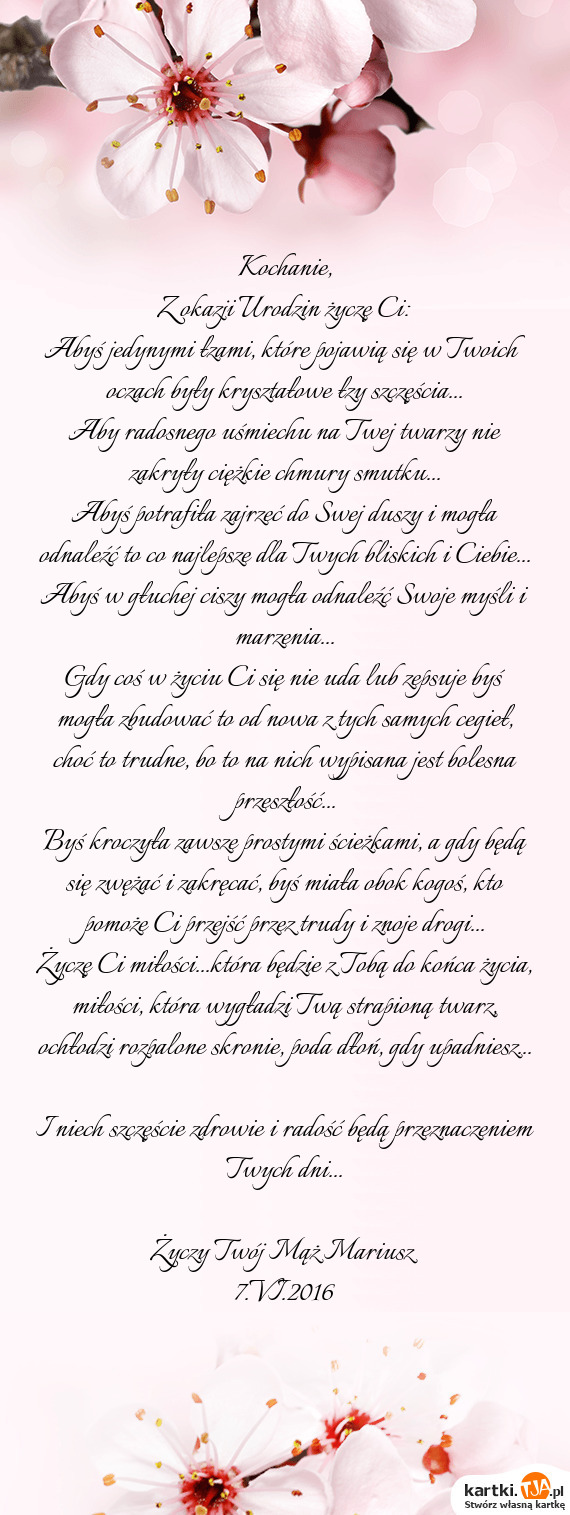 Kochanie,
Z okazji Urodzin życzę Ci:
Abyś jedynymi łzami, które pojawią się w Twoich
oczach były kryształowe łzy szczęścia...
Aby radosnego uśmiechu na Twej twarzy nie
zakryły ciężkie chmury smutku...
Abyś potrafiła zajrzeć do Swej duszy i mogła
odnaleźć to co najlepsze dla Twych bliskich i Ciebie...
Abyś w głuchej ciszy mogła odnaleźć Swoje myśli i
marzenia...
Gdy coś w życiu Ci się nie uda lub zepsuje byś
mogła zbudować to od nowa z tych samych cegieł,
choć to trudne, bo to na nich wypisana jest bolesna
przeszłość...
Byś kroczyła zawsze prostymi ścieżkami, a gdy będą
się zwężać i zakręcać, byś miała obok kogoś, kto
pomoże Ci przejść przez trudy i znoje drogi...
Życzę Ci miłości...która będzie z Tobą do końca życia,
miłości, która wygładzi Twą strapioną twarz,
ochłodzi rozpalone skronie, poda dłoń, gdy upadniesz...
I niech szczęście zdrowie i radość będą przeznaczeniem
Twych dni...
Życzy Twój Mąż Mariusz
7.VI.2016
kartki.TJA.pl
Stwórz własną kartkę